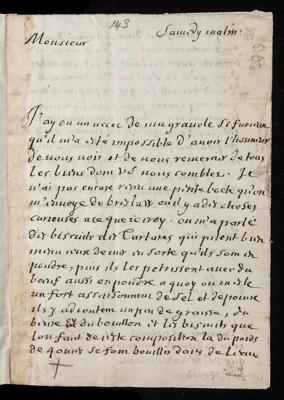 143
Samedy matin
Monsieur
J'ay eu un accez de ma gravele si furieux
qu'il m'a esté impossible d'avoir l'honneur
de vous voir et de vous remercier de tous
les biens dont V.S. nous comblez. Je
n'ai pas encore receu une petite boete qu'on
m'envoye de breslau ou il y a des choses
curieuses a ce que ie croy. on m'a parlé
des biscuits des Tartares qui pilent bien
menu
poudre, puis ils les petrissent avec du
boeuf aussi en poudre a quoy on mesle
un fort assaisonnement de Sel et de poivre
ils y adjoutent un peu de graisse, du
beurre et du bouillon et les biscuits que
l'on fait de cette composition la du poids
de 4 onces se font bouillir dans de l'eau